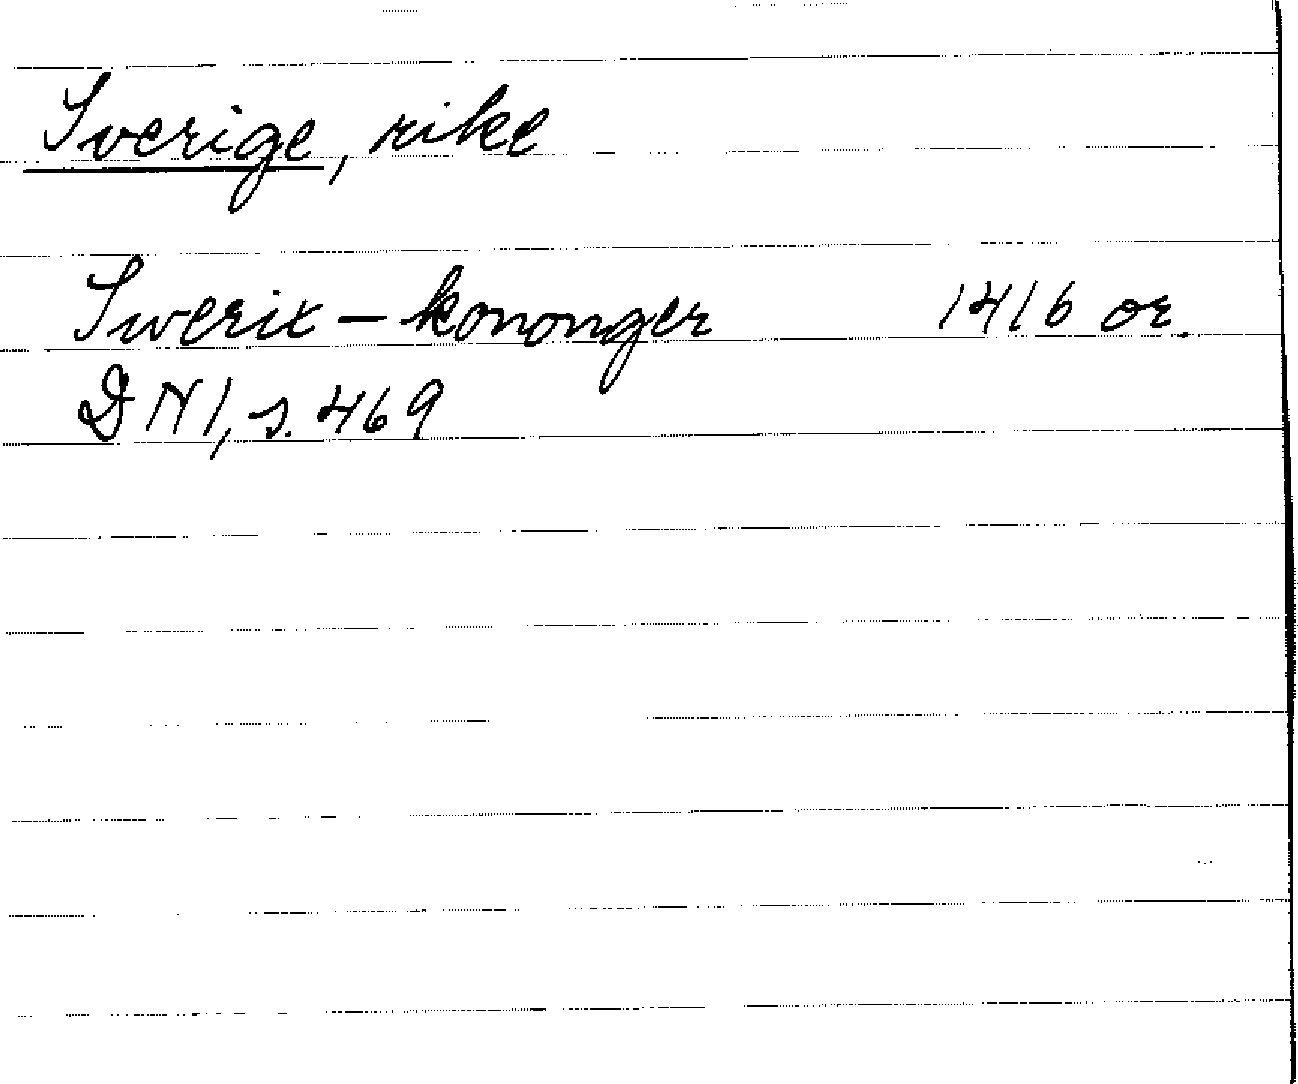 Sverige, rike
Swerix - kononger 1416 or.
DN 1, s. 469